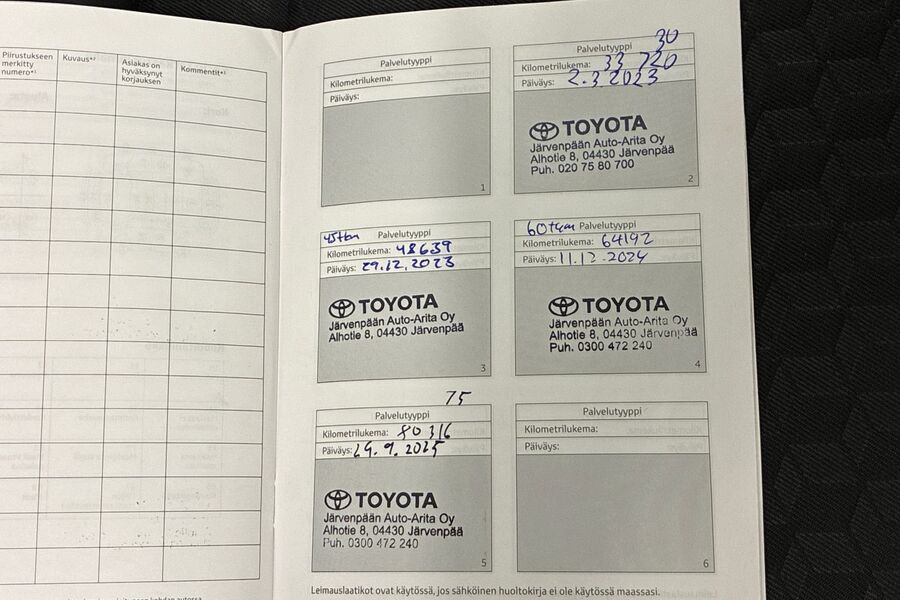 Piirustukseen merkitty numero*¹
Kuvaus*²
Asiakas on hyväksynyt korjauksen
Kommentit*³
Palvelutyyppi
Kilometrilukema:
Päiväys:
1
30
Palvelutyyppi
Kilometrilukema: 33 720
Päiväys: 2.3.2023
TOYOTA
Järvenpään Auto-Arita Oy
Alhotie 8, 04430 Järvenpää
Puh. 020 75 80 700
2
45tkm Palvelutyyppi
Kilometrilukema: 48639
Päiväys: 29.12.2023
TOYOTA
Järvenpään Auto-Arita Oy
Alhotie 8, 04430 Järvenpää
3
60tkm Palvelutyyppi
Kilometrilukema: 64192
Päiväys: 11.12.2024
TOYOTA
Järvenpään Auto-Arita Oy
Alhotie 8, 04430 Järvenpää
Puh. 0300 472 240
4
75
Palvelutyyppi
Kilometrilukema: 80316
Päiväys: 29.9.2025
TOYOTA
Järvenpään Auto-Arita Oy
Alhotie 8, 04430 Järvenpää
Puh. 0300 472 240
5
Palvelutyyppi
Kilometrilukema:
Päiväys:
6
Leimauslaatikot ovat käytössä, jos sähköinen huoltokirja ei ole käytössä maassasi.